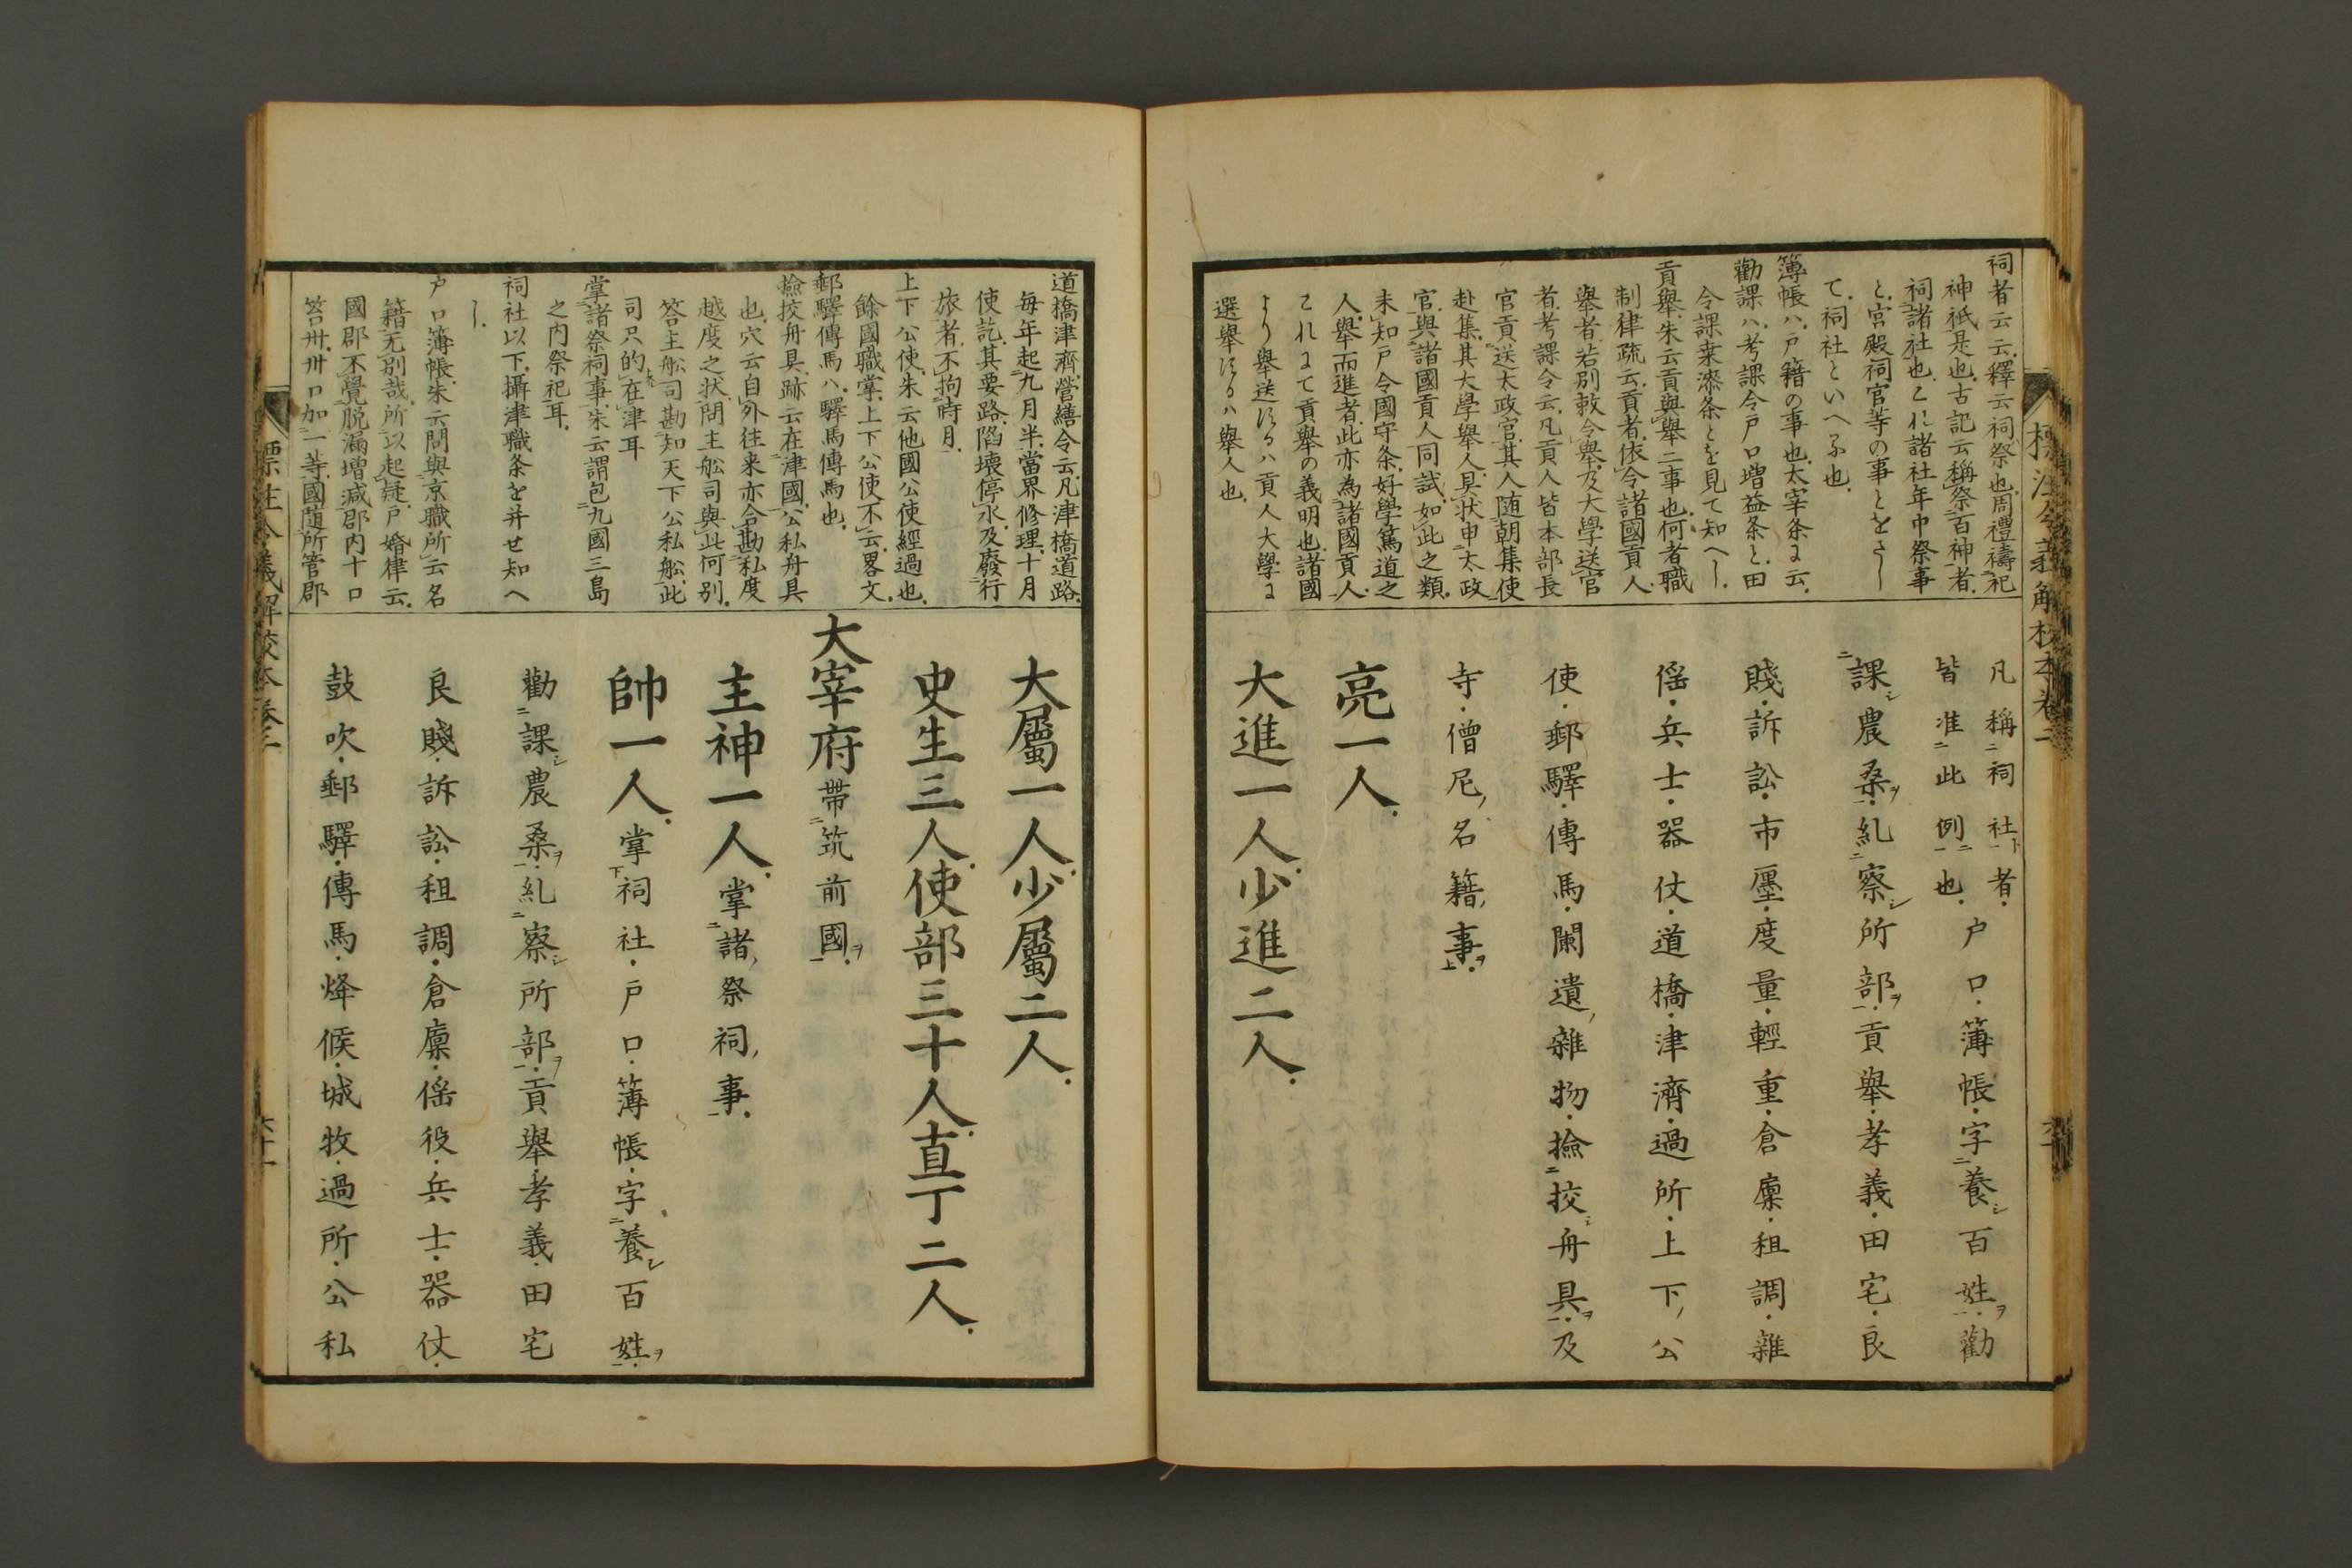 祠者云云、釋云祠、祭也、周禮禱祀
神祇是也、古記云稱祭百神者、
祠諸社也、これ諸社年中祭事
と、宮殿祠官等の事とをさし
て、祠社といへる也、
簿帳ハ、戸籍の事也、太宰条に云、
勸課ハ、考課令戸口増益条と、田
令課桒漆条とを見て知へし、
貢舉、朱云貢與舉二事也、何者職
制律疏云、貢者、依令諸國貢人、
舉者、若別敕令舉、及大學送官
者、考課令云、凡貢人皆本部長
官貢送太政官、其人随朝集使
赴集、其大學舉人、具状申太政
官、與諸國貢人同試、如此之類、
未知戸令國守条、好學篤道之
人、舉而進者、此亦為諸國貢人、
これにて貢舉の義明也、諸國
より舉送するハ貢人大學に
選舉するハ舉人也、
凡稱祠社者、
皆准此例也、戸口、簿帳、字養百姓、勸
課農桑、糺察所部、貢舉、孝義、田宅、良
賤、訴訟、市廛、度量、輕重、倉廩、租調、雜
徭、兵士、器仗、道橋、津濟、過所、上下公
使、郵驛、傳馬、闌遺雜物、撿挍舟具、及
寺、僧尼名籍事、
亮一人、
大進一人、少進二人、
道橋津濟、營繕令云、凡津橋道路、
毎年起九月半、當界修理、十月
使訖、其要路陷壊停水、及廢行
旅者、不拘時月、
上下公使、朱云他國公使經過也、
餘國職掌、上下公使不云、畧文、
郵驛傳馬ハ、驛馬傳馬也、
撿挍舟具、跡云在津國、公私舟具
也、穴云自外往来亦合勘私度
越度之状、問主舩司與此何別、
答主舩司勘知天下公私舩、此
司只的在津耳
掌諸祭祠事、朱云謂包九國三島
之内祭祀耳、
祠社以下、攝津職条を并せ知へ
し、
戸口簿帳、朱云問與京職所云名
籍无別哉、所以起疑、戸婚律云、
國郡不覺脱漏増減、郡内十口
笞卅、卅口加一等、國随所管郡
大屬一人、少屬二人、
史生三人、使部三十人、直丁二人、
大宰府帶筑前國、
主神一人、掌諸祭祠事、
帥一人、掌祠社、戸口、簿帳、字養百姓、
勸課農桑、糺察所部、貢舉、孝義、田宅
良賤、訴訟、租調、倉廩、徭役、兵士、器仗、
鼓吹、郵驛、傳馬、烽候、城牧、過所、公私